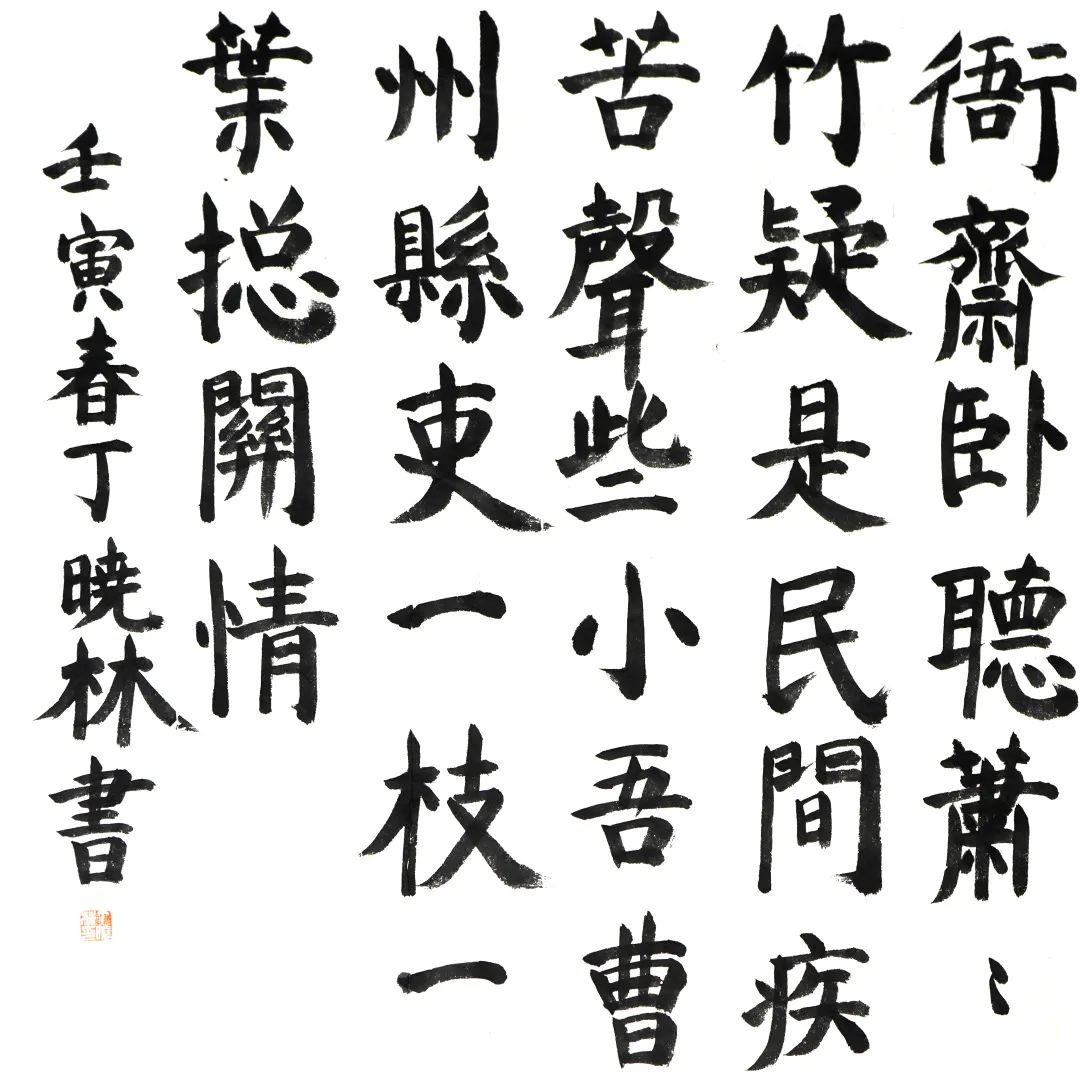 衙齋卧聽蕭〻
竹疑是民間疾
苦聲些小吾曹
州縣吏一枝一
葉捴關情
壬寅春丁曉林書